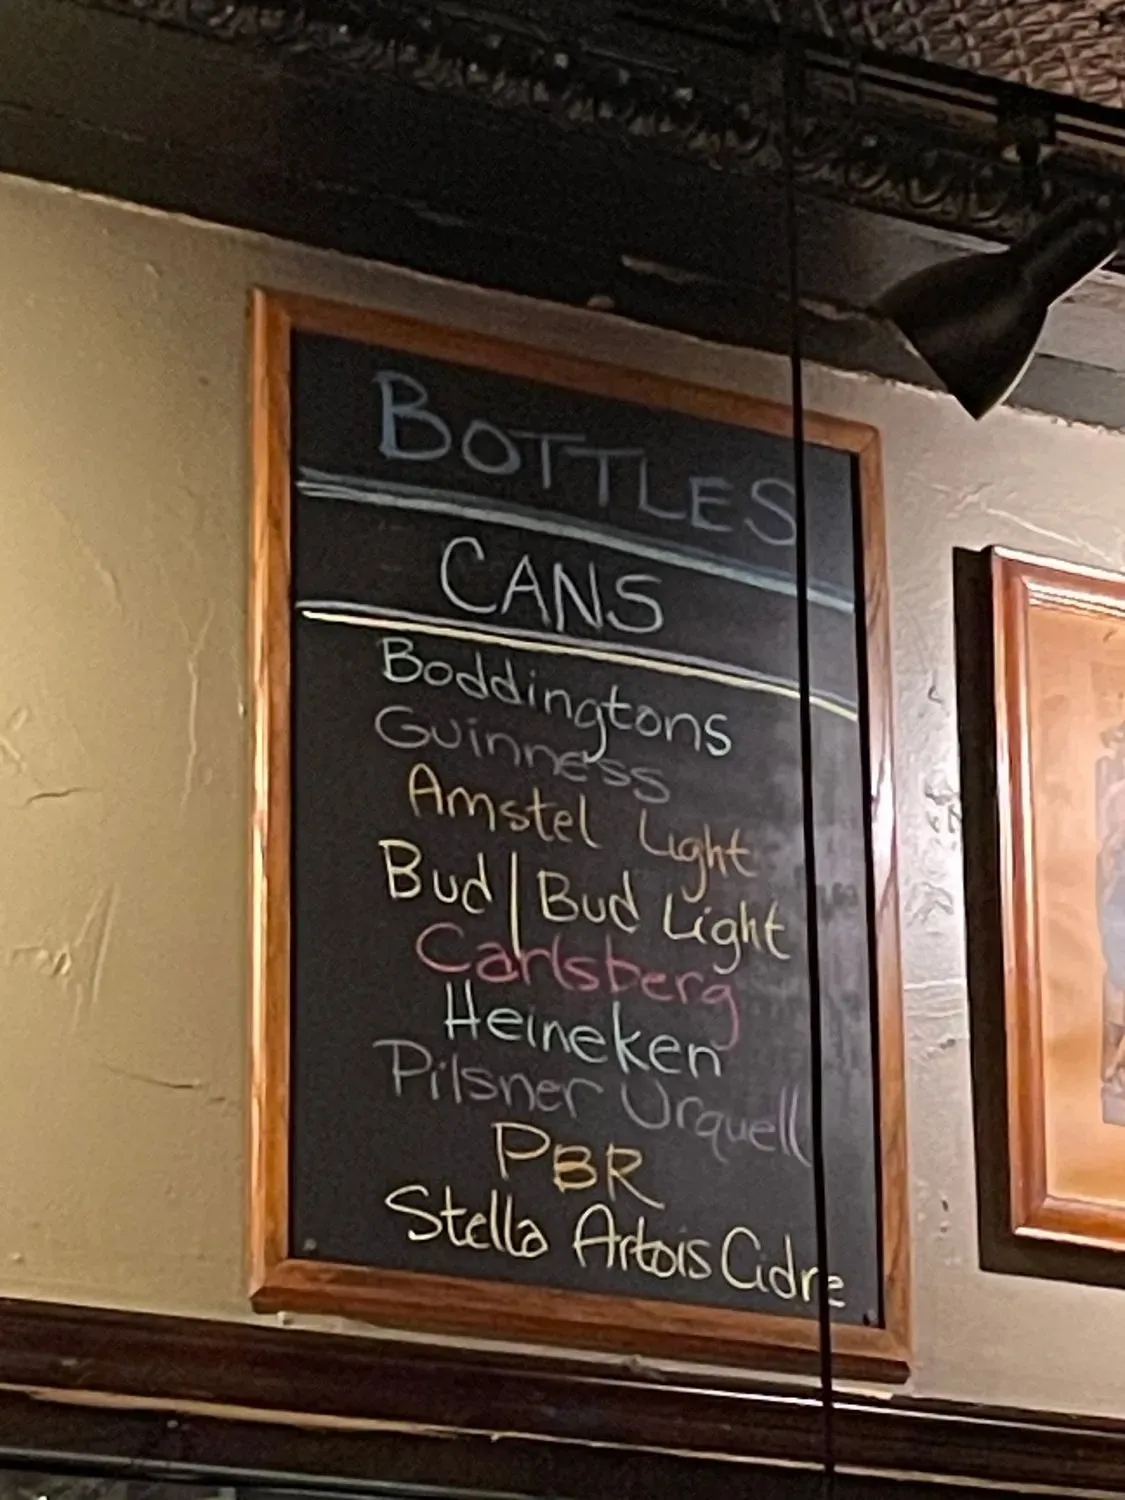 BOTTLES
CANS
Boddingtons
Guinness
Amstel Light
Bud/Bud Light
Carlsberg
Heineken
Pilsner Urquell
PBR
Stella Artois Cidre